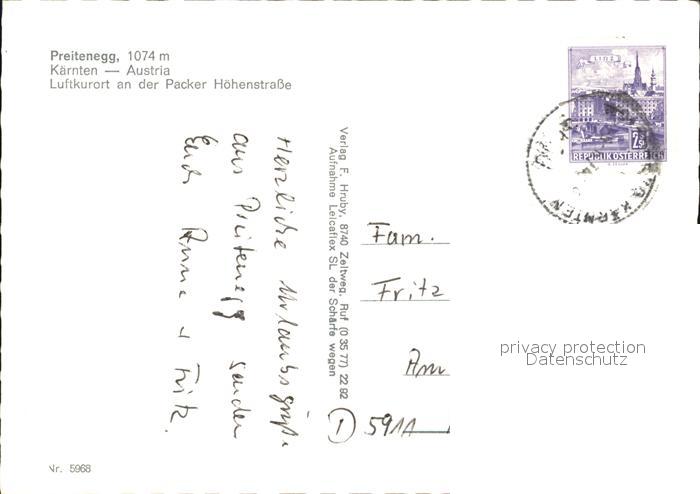 Preitenegg, 1074 m
Kärnten — Austria
Luftkurort an der Packer Höhenstraße
LINZ
2.50
REPUBLIK ÖSTERREICH
KÄRNTEN
Herzliche Urlaubsgrüße
aus Preitenegg senden
Euch Anna u Fritz.
Verlag F. Hruby, 8740 Zeltweg, Ruf (0 35 77) 22 92
Aufnahme Leicaflex SL der Schärfe wegen
Fam.
Fritz
Am
5911
privacy protection
Datenschutz
Nr. 5968